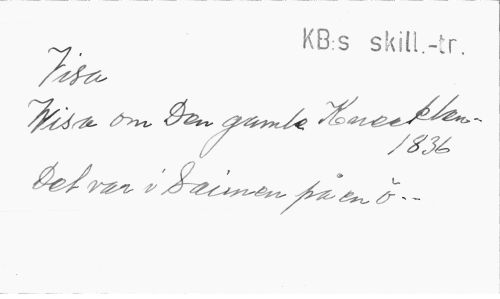 KB:s skill.-tr.
Visa
Wisa om Den gamle Knecktan-
1836
Det var i Saimen på en ö--